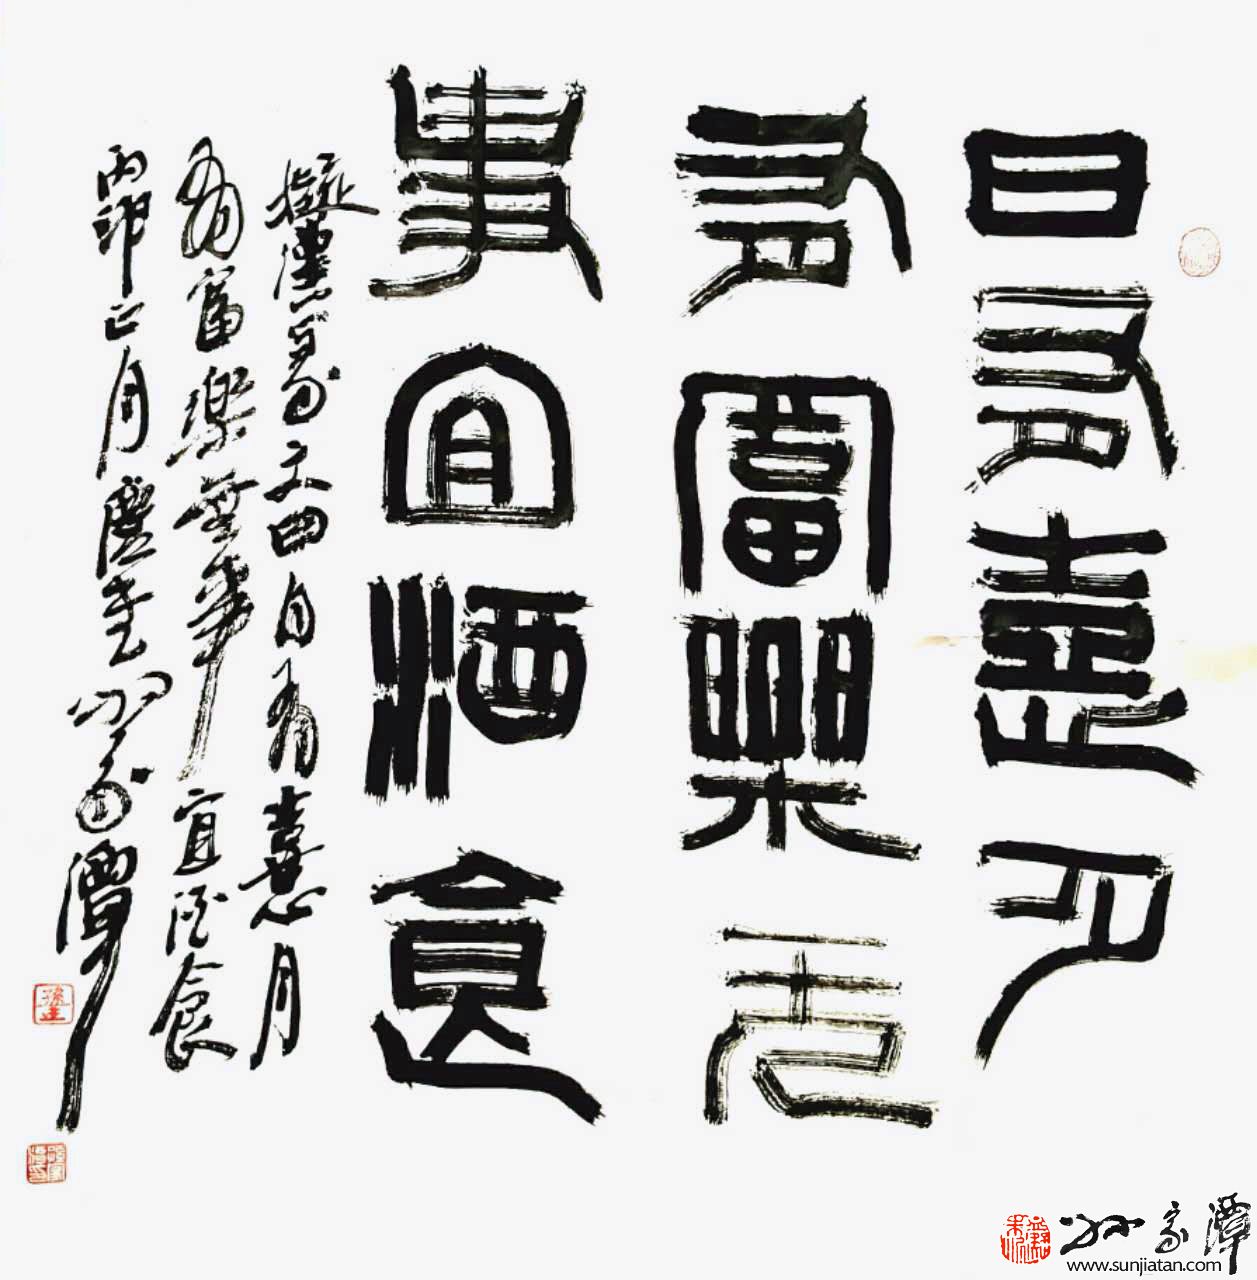 日有憙月
有富樂无
事宜酒食
擬漢篆文曰日有憙月
有富樂無事宜酒食
丙申正月 孫家潭
孫家潭
www.sunjiatan.com